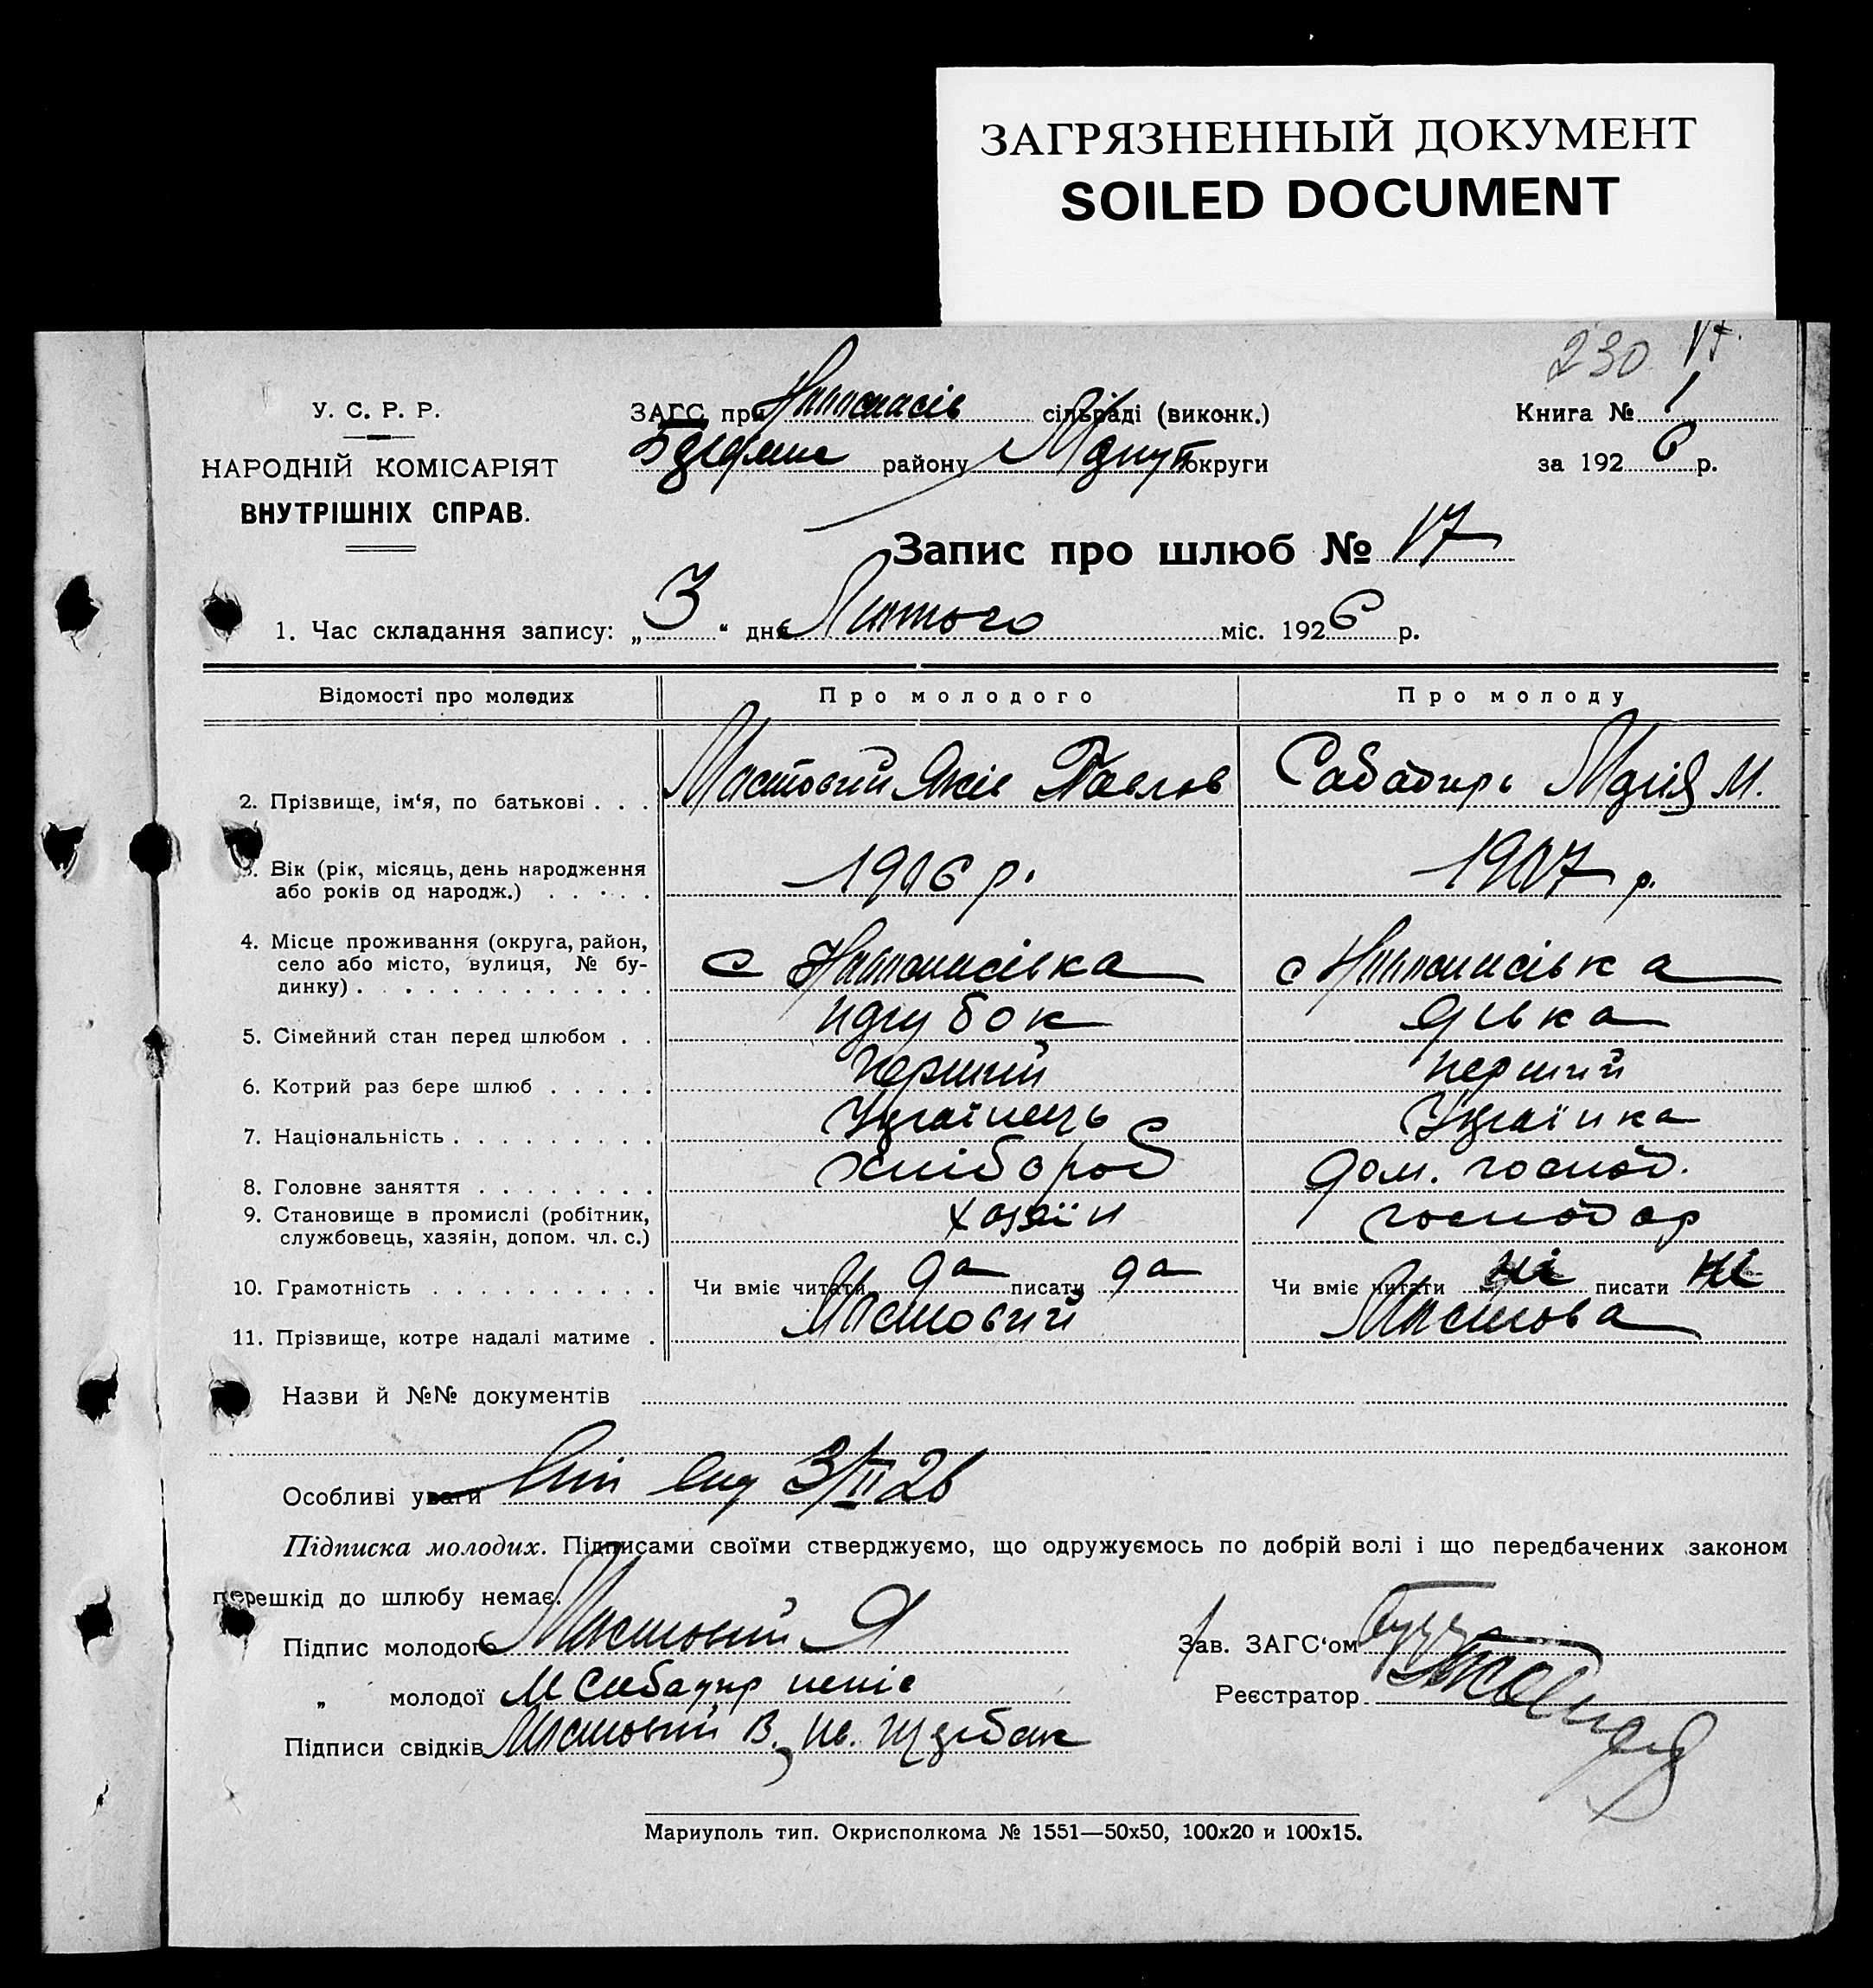 ЗАГРЯЗНЕННЫЙ ДОКУМЕНТ
SOILED DOCUMENT
230 17.
У. С. Р. Р.
НАРОДНІЙ КОМІСАРІЯТ
ВНУТРІШНІХ СПРАВ.
ЗАГС при сільраді (виконк.)
району округи
Книга № 1
за 1926 р.
Запис про шлюб № 17
1. Час складання запису: „3“ дня Лютого міс. 1926 р.
Відомості про молодих Про молодого Про молоду
2. Прізвище, ім‘я, по батькові . . . Мостовий Яків Павлов Сабадирь Марія М.
3. Вік (рік, місяць, день народження
або років од народж.) . . . . . 1906 р. 1907 р.
4. Місце проживання (округа, район,
село або місто, вулиця, № бу-
динку) . . . . . . . . . . . . . с с
5. Сімейний стан перед шлюбом . . парубок дівка
6. Котрий раз бере шлюб . . . . . Перший перший
7. Національність . . . . . . . . . Українець Українка
8. Головне заняття . . . . . . . . хлібороб дом. господ.
9. Становище в промислі (робітник,
службовець, хазяін, допом. чл. с.) хазяїн господар
10. Грамотність . . . . . . . . . . Чи вміє читати да писати да Чи вміє читати ні писати ні
11. Прізвище, котре надалі матиме . Мостовий Мостова
Назви й №№ документів
Особливі уваги 3/II 26
Підписка молодих. Підписами своїми стверджуємо, що одружуємось по добрій волі і що передбачених законом
перешкід до шлюбу немає.
Підпис молодого Мостовий Я
„ молодої М Сабадир
Підписи свідків Мостовий В., Ив. Щербак
Зав. ЗАГС‘ом
Реєстратор
Мариуполь тип. Окрисполкома № 1551—50х50, 100х20 и 100х15.